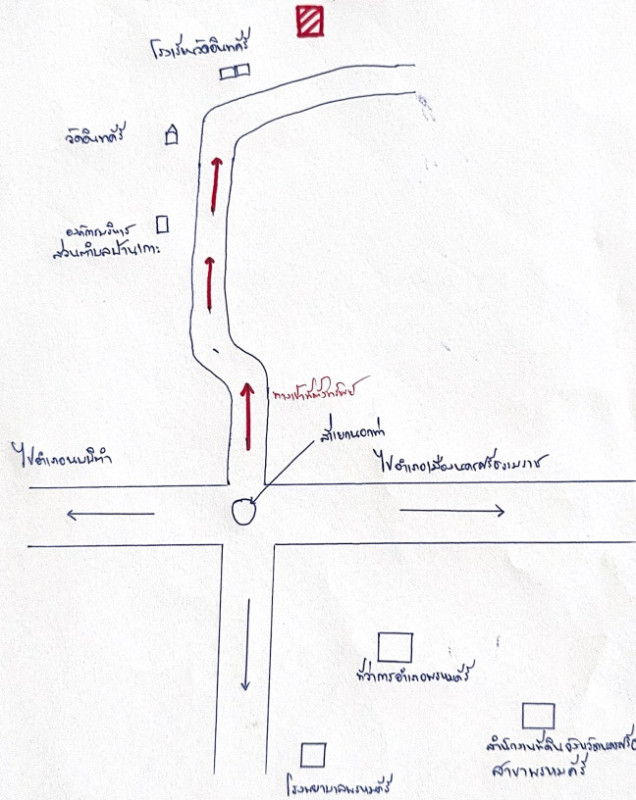 โรงเรียนวัดอินทคีรี
วัดอินทคีรี
องค์การบริหาร
ส่วนตำบลบ้านเกาะ
ทางเข้าที่ตั้งทรัพย์
สี่แยกนอกท่า
ไปอำเภอนบพิตำ
ไปอำเภอเมืองนครศรีธรรมราช
ที่ว่าการอำเภอพรหมคีรี
สำนักงานที่ดินจังหวัดนครศรี
สาขาพรหมคีรี
โรงพยาบาลพรหมคีรี